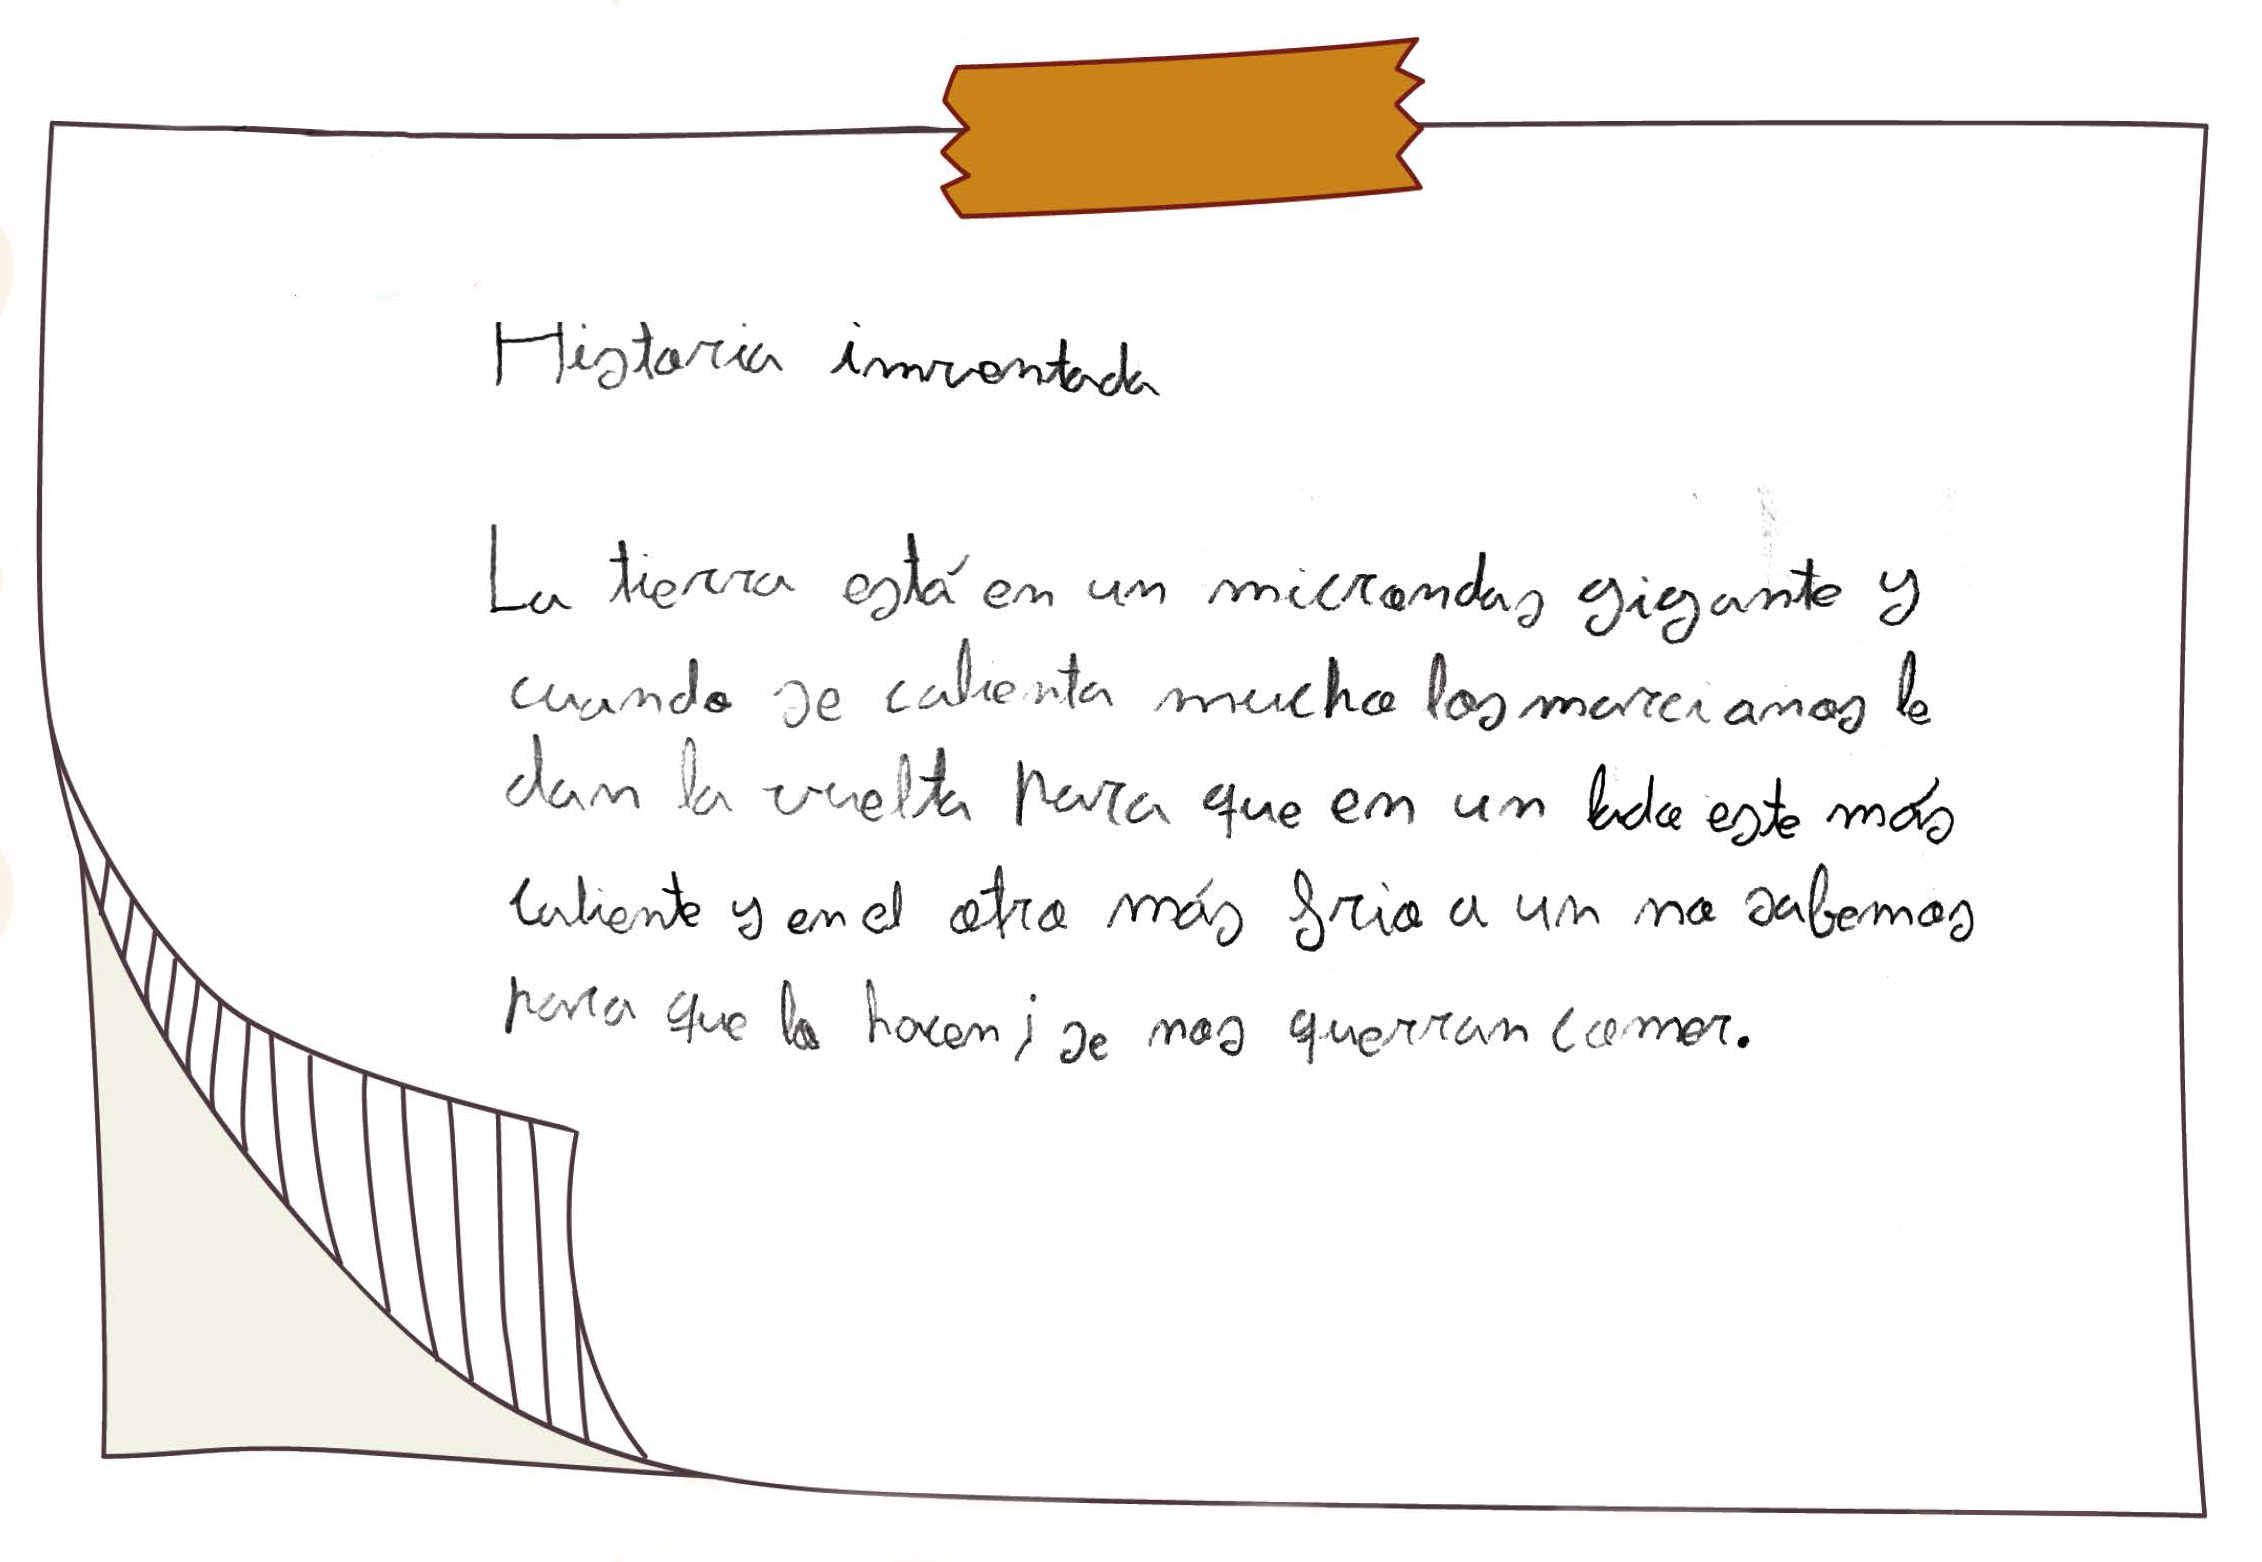 Historia inventada
La tierra está en un microndas gigante y
cuando se calienta mucho los marcianos le
dan la vuelta para que en un lado este más
caliente y en el otro más frio a un no sabemos
para que lo hacen; se nos querran comer.